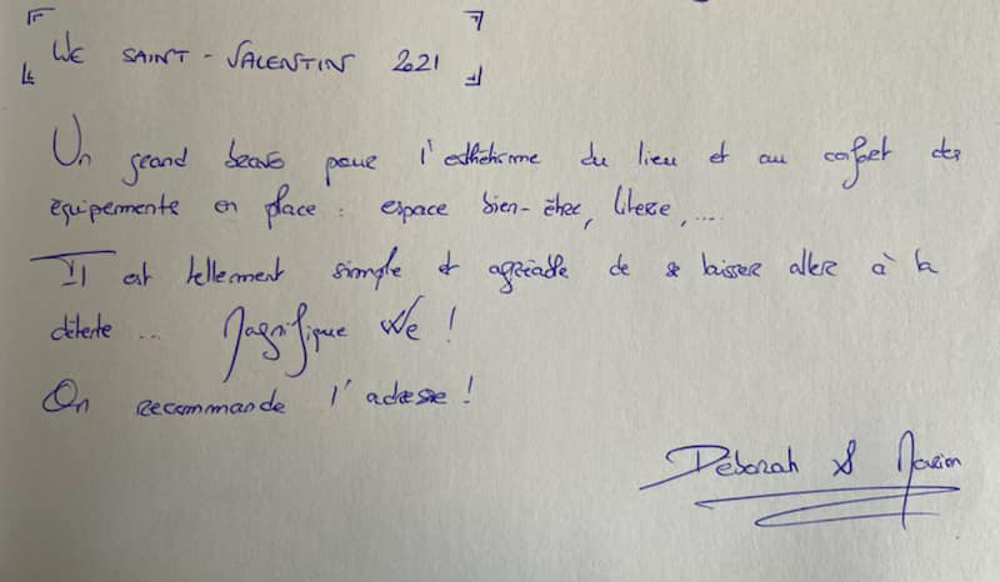 WE SAINT-VALENTIN 2021
Un grand bravo pour l'esthétisme du lieu et au confort des
équipements en place : espace bien-être, literie, ....
Il est tellement simple et agréable de se laisser aller à la
détente ... Magnifique We !
On recommande l'adresse !
Déborah & Marion